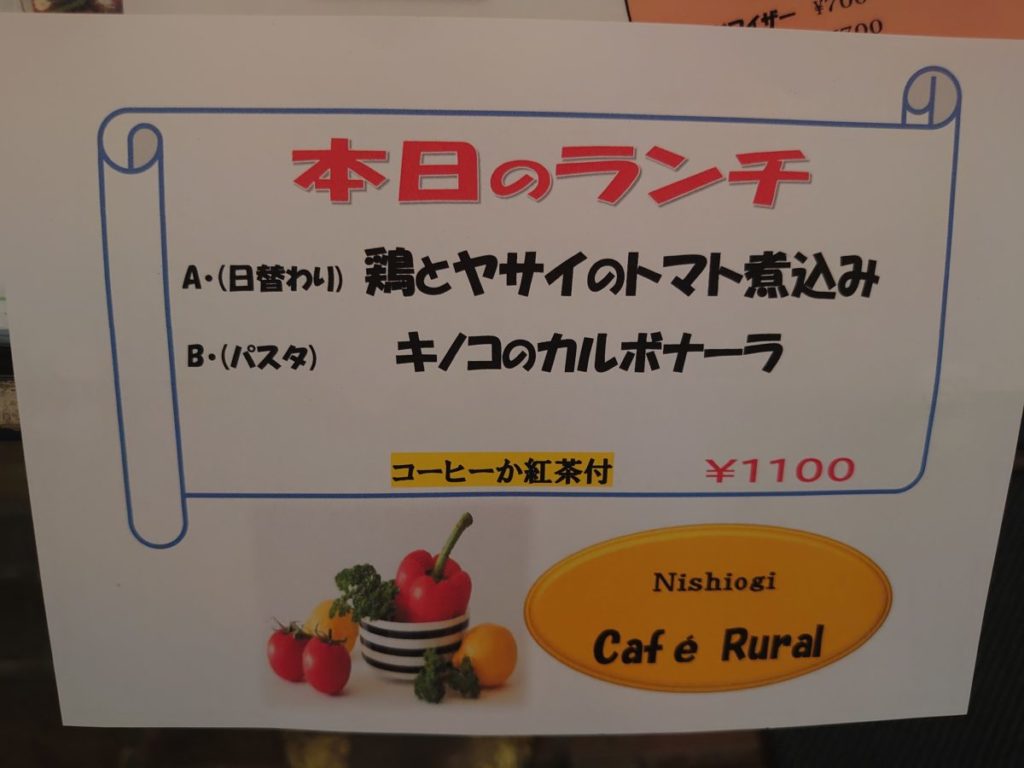 ワイザー ¥700
¥700
本日のランチ
A・(日替わり) 鶏とヤサイのトマト煮込み
B・(パスタ) キノコのカルボナーラ
コーヒーか紅茶付 ¥1100
Nishiogi
Café Rural